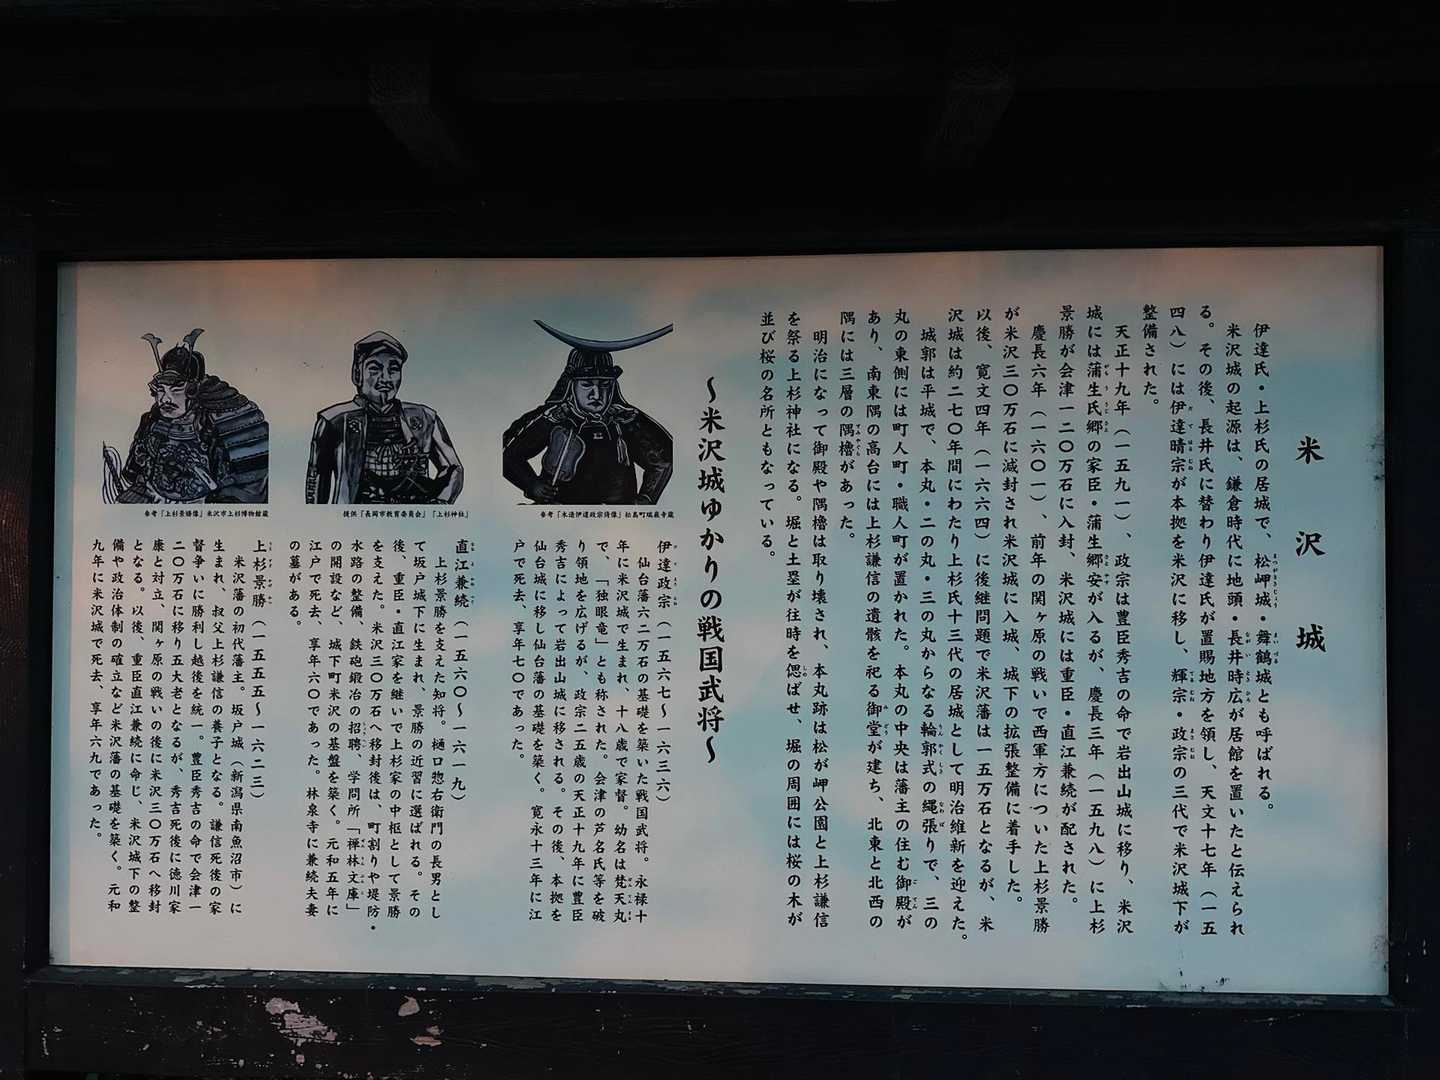 米沢城
伊達氏・上杉氏の居城で、松岬城・舞鶴城とも呼ばれる。
米沢城の起源は、鎌倉時代に地頭・長井時広が居館を置いたと伝えられ
る。その後、長井氏に替わり伊達氏が置賜地方を領し、天文十七年（一五
四八）には伊達晴宗が本拠を米沢に移し、輝宗・政宗の三代で米沢城下が
整備された。
天正十九年（一五九一）、政宗は豊臣秀吉の命で岩出山城に移り、米沢
城には蒲生氏郷の家臣・蒲生郷安が入るが、慶長三年（一五九八）に上杉
景勝が会津一二〇万石に入封、米沢城には重臣・直江兼続が配された。
慶長六年（一六〇一）、前年の関ヶ原の戦いで西軍方についた上杉景勝
が米沢三〇万石に減封され米沢城に入城、城下の拡張整備に着手した。
以後、寛文四年（一六六四）に後継問題で米沢藩は一五万石となるが、米
沢城は約二七〇年間にわたり上杉氏十三代の居城として明治維新を迎えた。
城郭は平城で、本丸・二の丸・三の丸からなる輪郭式の縄張りで、三の
丸の東側には町人町・職人町が置かれた。本丸の中央は藩主の住む御殿が
あり、南東隅の高台には上杉謙信の遺骸を祀る御堂が建ち、北東と北西の
隅には三層の隅櫓があった。
明治になって御殿や隅櫓は取り壊され、本丸跡は松が岬公園と上杉謙信
を祭る上杉神社になる。堀と土塁が往時を偲ばせ、堀の周囲には桜の木が
並び桜の名所ともなっている。
〜米沢城ゆかりの戦国武将〜
参考「木造伊達政宗倚像」松島町瑞巌寺蔵
伊達政宗（一五六七〜一六三六）
仙台藩六二万石の基礎を築いた戦国武将。永禄十
年に米沢城で生まれ、十八歳で家督。幼名は梵天丸
で、「独眼竜」とも称された。会津の芦名氏等を破
り領地を広げるが、政宗二五歳の天正十九年に豊臣
秀吉によって岩出山城に移される。その後、本拠を
仙台城に移し仙台藩の基礎を築く。寛永十三年に江
戸で死去、享年七〇であった。
提供「長岡市教育委員会」「上杉神社」
直江兼続（一五六〇〜一六一九）
上杉景勝を支えた知将。樋口惣右衛門の長男とし
て坂戸城下に生まれ、景勝の近習に選ばれる。その
後、重臣・直江家を継いで上杉家の中枢として景勝
を支えた。米沢三〇万石へ移封後は、町割りや堤防・
水路の整備、鉄砲鍛冶の招聘、学問所「禅林文庫」
の開設など、城下町米沢の基盤を築く。元和五年に
江戸で死去、享年六〇であった。林泉寺に兼続夫妻
の墓がある。
参考「上杉景勝像」米沢市上杉博物館蔵
上杉景勝（一五五五〜一六二三）
米沢藩の初代藩主。坂戸城（新潟県南魚沼市）に
生まれ、叔父上杉謙信の養子となる。謙信死後の家
督争いに勝利し越後を統一。豊臣秀吉の命で会津一
二〇万石に移り五大老となるが、秀吉死後に徳川家
康と対立、関ヶ原の戦いの後に米沢三〇万石へ移封
となる。以後、重臣直江兼続に命じ、米沢城下の整
備や政治体制の確立など米沢藩の基礎を築く。元和
九年に米沢城で死去、享年六九であった。